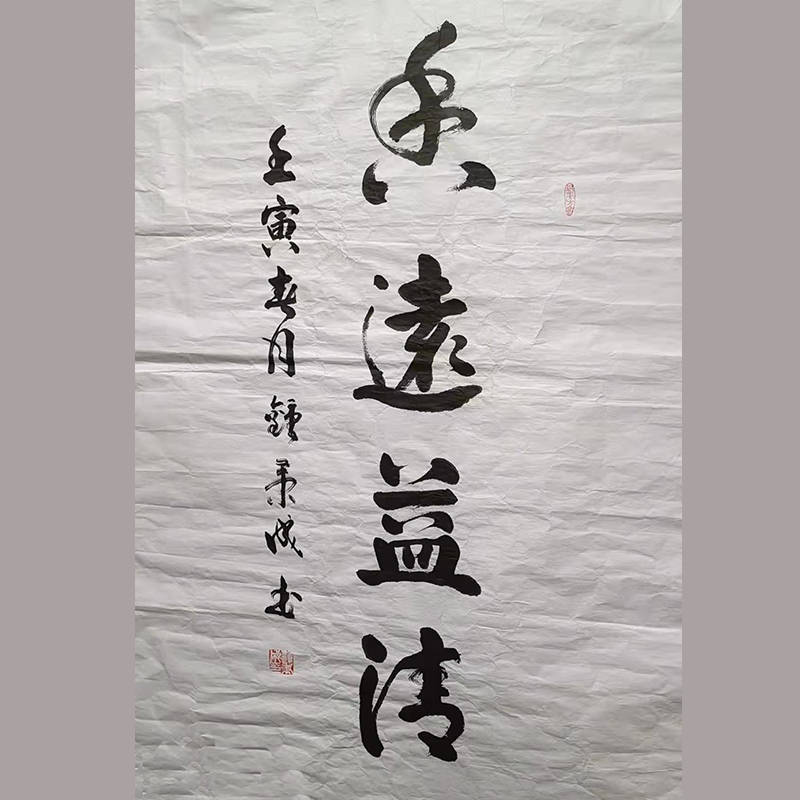 香遠益清
壬寅春月鍾景成书